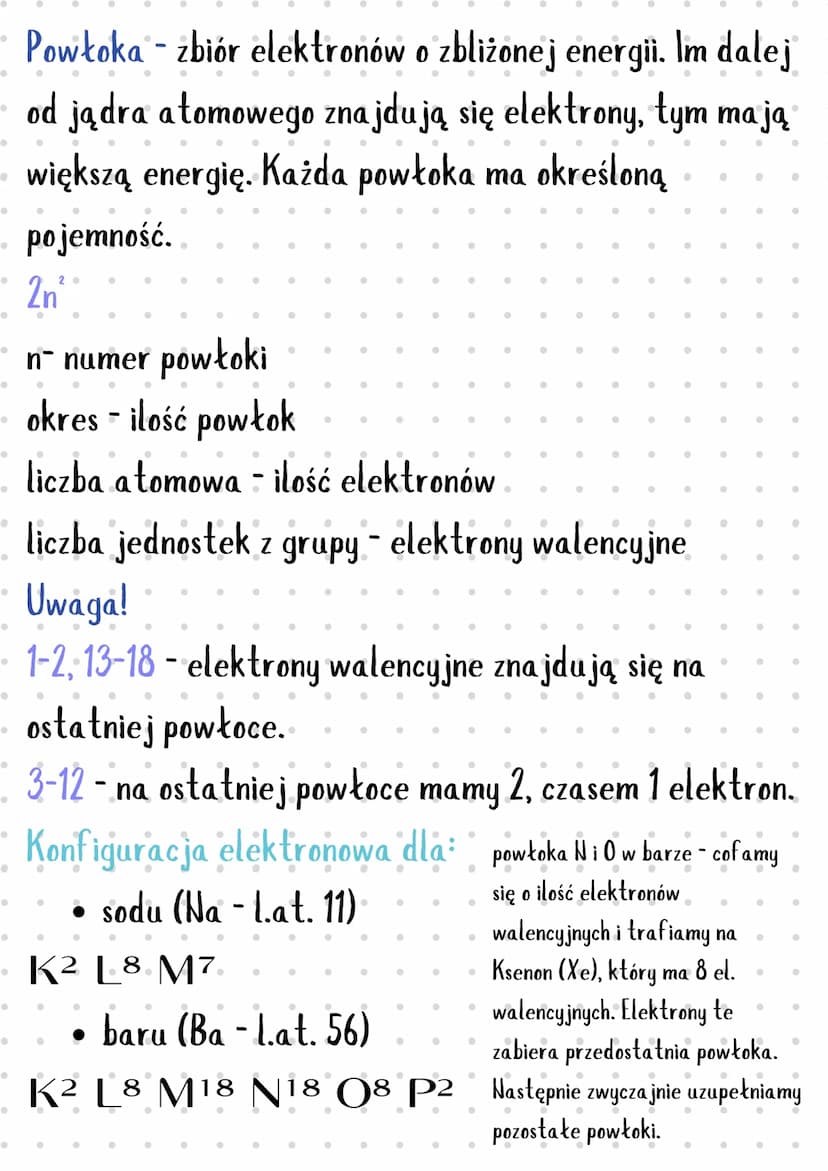 Powłoka - zbiór elektronów o zbliżonej energii. Im dalej
od jądra atomowego znajdują się elektrony, tym mają
większą energię. Każda powłoka ma określoną
pojemność.
2n²
n- numer powłoki
okres - ilość powłok
liczba atomowa - ilość elektronów
liczba jednostek z grupy - elektrony walencyjne
Uwaga!
1-2, 13-18 - elektrony walencyjne znajdują się na
ostatniej powłoce.
3-12 - na ostatniej powłoce mamy 2, czasem 1 elektron.
Konfiguracja elektronowa dla:
• sodu (Na - l.at. 11)
K² L⁸ M⁷
• baru (Ba - l.at. 56)
K² L⁸ M¹⁸ N¹⁸ O⁸ P²
powłoka N i O w barze - cofamy
się o ilość elektronów
walencyjnych i trafiamy na
Ksenon (Xe), który ma 8 el.
walencyjnych. Elektrony te
zabiera przedostatnia powłoka.
Następnie zwyczajnie uzupełniamy
pozostałe powłoki.